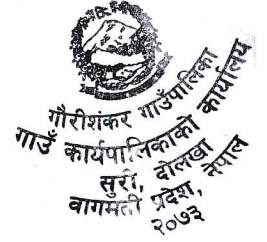 गौरीशंकर गाउँपालिका
गाउँ कार्यपालिकाको कार्यालय
सुरी, दोलखा
वागमती प्रदेश, नेपाल
२०७३